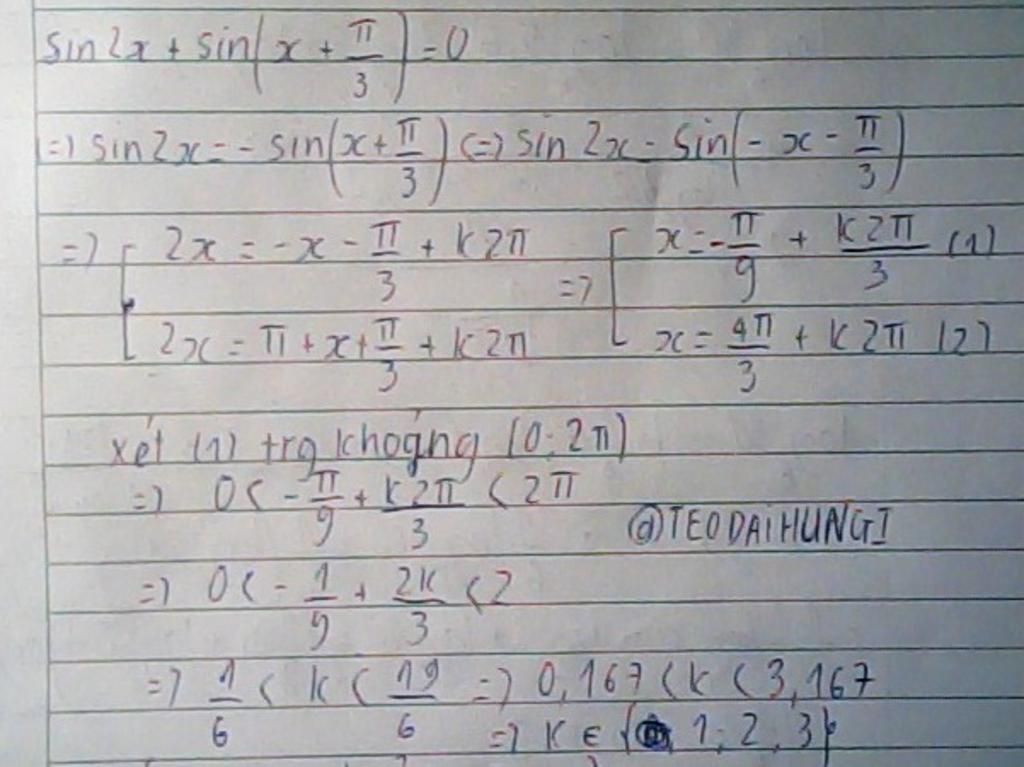 sin2x + sin(x + π/3) = 0
=> sin2x = - sin(x + π/3) <=> sin 2x = sin(- x - π/3)
=> [ 2x = -x - π/3 + k2π => [ x = -π/9 + k2π/3 (1)
2x = π + x + π/3 + k2π x = 4π/3 + k2π (2)
xét (1) trg khoảng (0; 2π)
=> 0 < - π/9 + k2π/3 < 2π
@TEODAIHUNGI
=> 0 < - 1/9 + 2k/3 < 2
=> 1/6 < k < 19/6 => 0,167 < k < 3,167
=> k ∈ { 1; 2, 3}